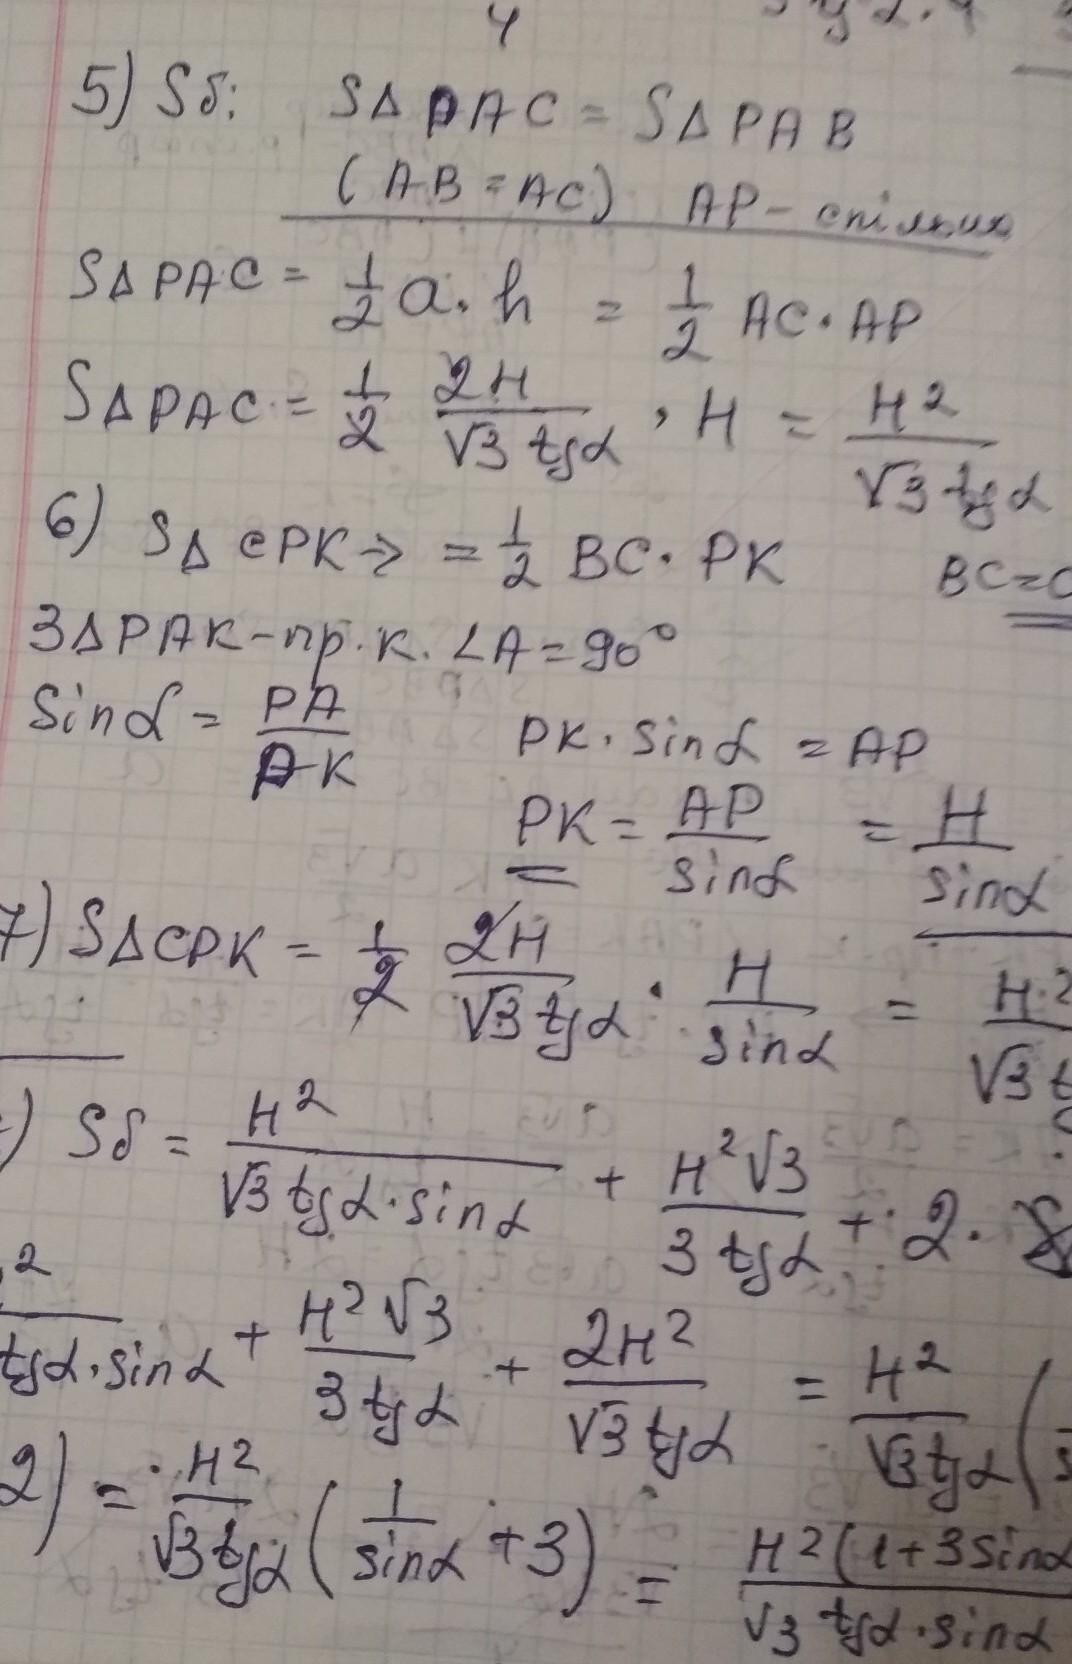 4
5) Sδ: S∆ PAC = S∆ PAB
(AB = AC) AP - спільна
S∆PAC = 1/2 a · h = 1/2 AC · AP
S∆PAC = 1/2 2H/√3 tgα · H = H²/√3 tgα
6) S∆ CPK → = 1/2 BC · PK BC =
З ∆PAK - пр.к. ∠A = 90°
Sinα = PA/PK PK · Sinα = AP
PK = AP/sinα = H/sinα
7) S∆CPK = 1/2 2H/√3 tgα · H/sinα = H²/√3 t
) Sδ = H²/√3 tgα · sinα + H²√3/3 tgα + 2 ·
2/tgα · sinα + H²√3/3 tgα + 2H²/√3 tgα = H²/√3 tgα (
2) = H²/√3 tgα (1/sinα + 3) = H²(1+3sinα/√3 tgα · sinα